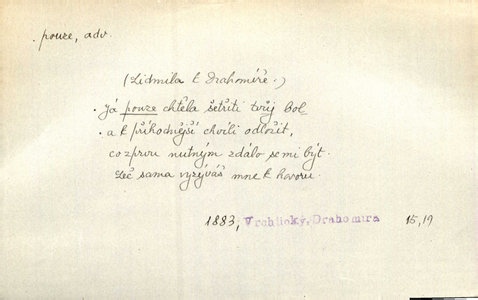 . pouze, adv.
(Lidmila k Drahomíře.)
. Já pouze chtěla šetřiti tvůj bol
. a k příhodnější chvíli odložit,
co zprvu nutným zdálo se mi být.
Leč sama vyzýváš mne k hovoru.
1883, Vrchlický, Drahomíra 15,19